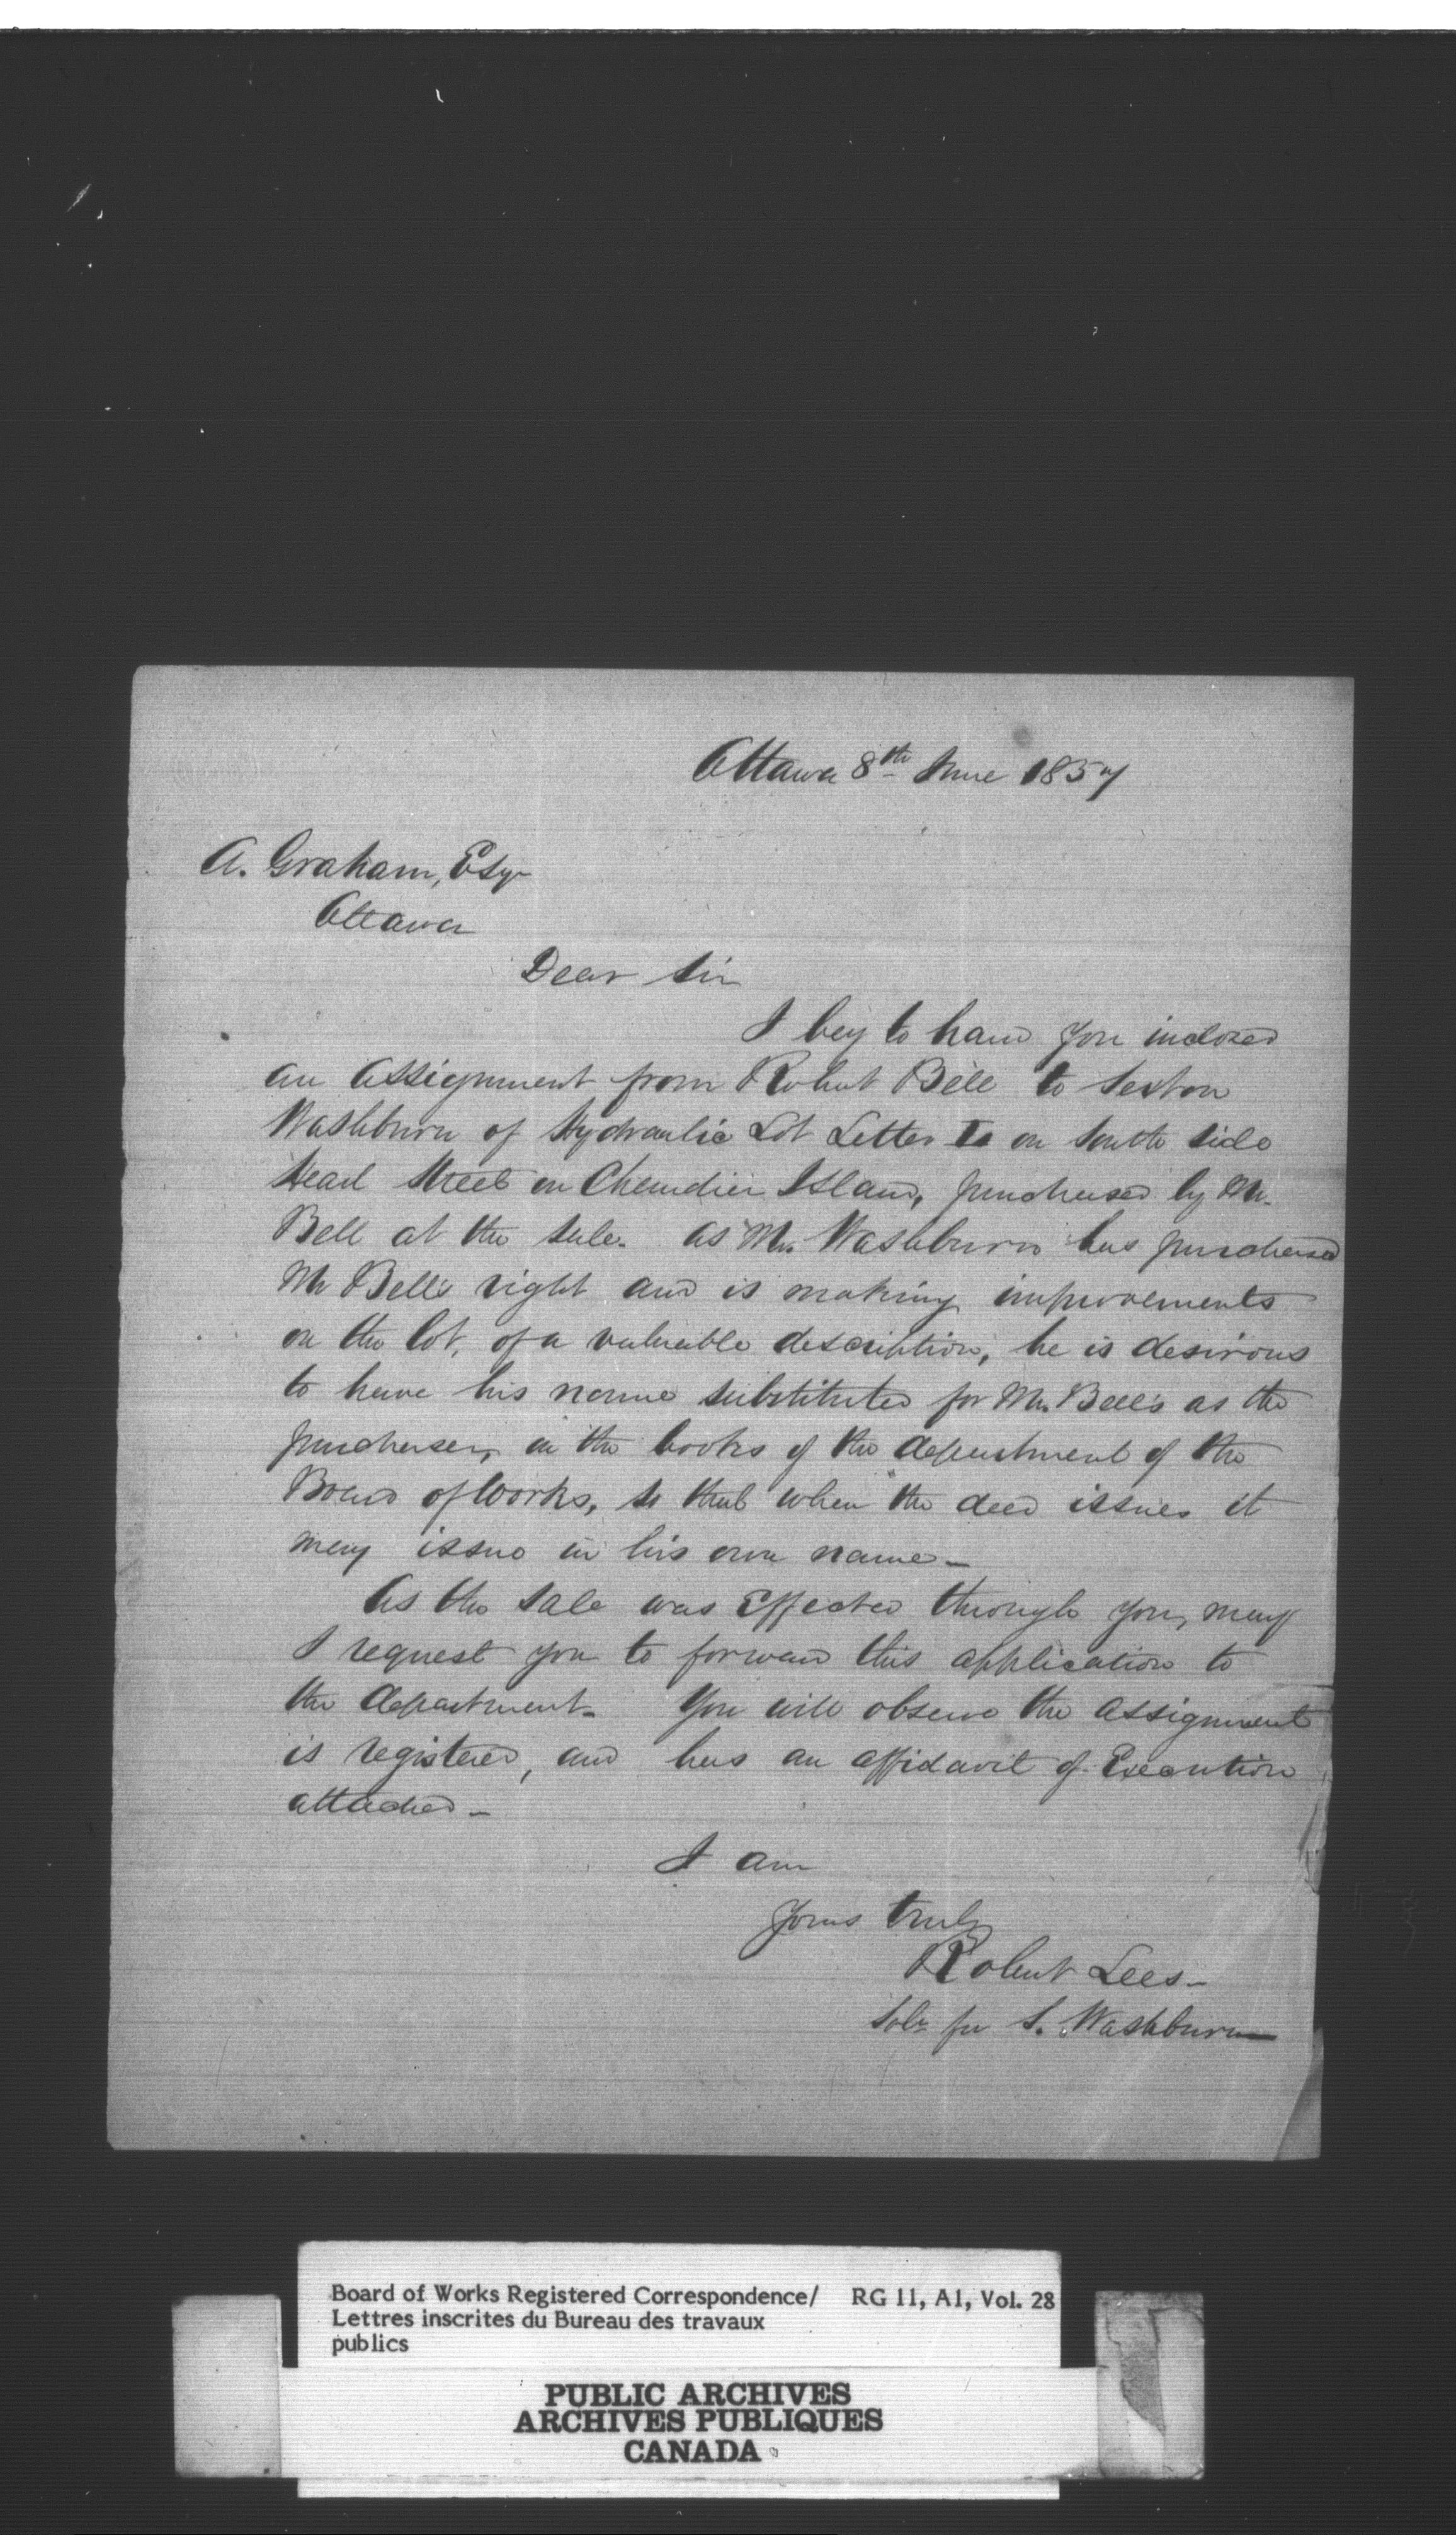 Ottawa 8th June 1857
A. Graham, Esqr
Ottawa
Dear Sir
I beg to hand you inclosed
an Assignment from Robert Bell to Sexton
Washburn of Hydraulic Lot Letter on South side
Head Street on Chaudier Island, purchased by Mr.
Bell at the sale. As Mr. Washburn has purchased
Mr Bell's right and is making improvements
on the lot, of a valuable description, he is desirous
to have his name substituted for Mr. Bell's as the
purchaser, in the books of the department of the
Board of Works, so that when the deed issues it
may issue in his own name -
As the sale was Effected through you, may
I request you to forward this application to
the department. You will observe the Assignment
is registered, and has an affidavit of Execution
attached -
I am
Yours truly
Robert Lees -
Solr for S. Washburn
Board of Works Registered Correspondence/ RG 11, A1, Vol. 28
Lettres inscrites du Bureau des travaux
publics
PUBLIC ARCHIVES
ARCHIVES PUBLIQUES
CANADA